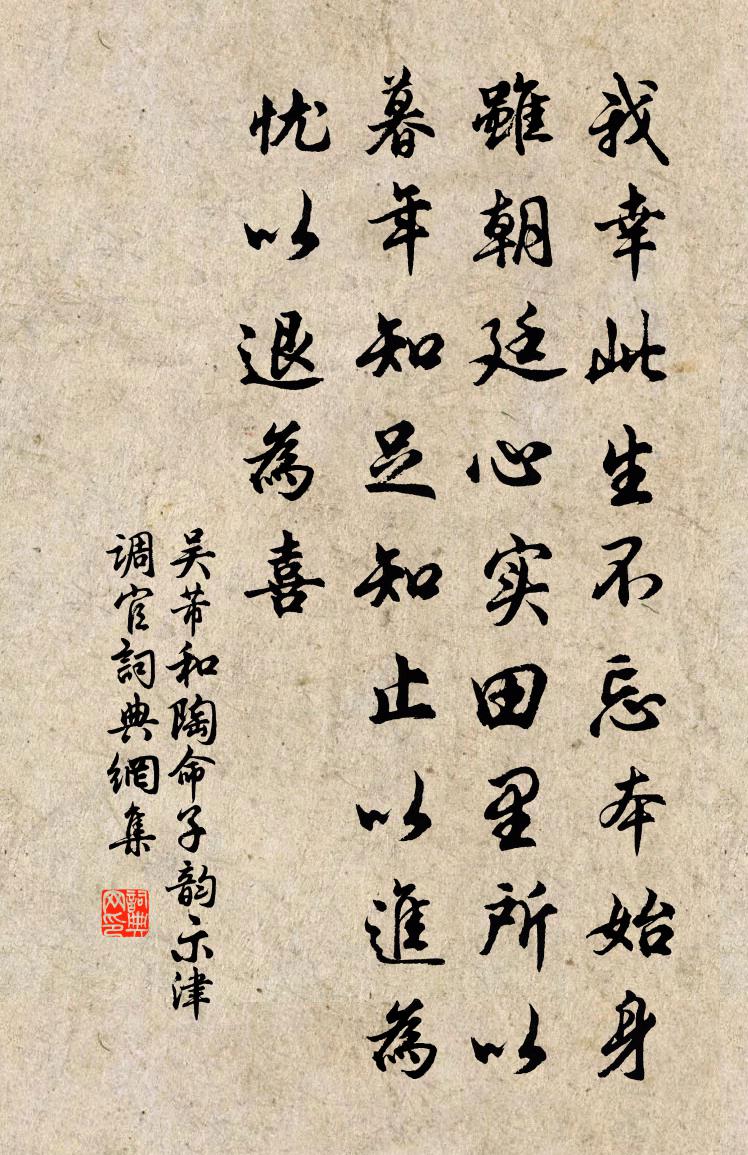 我幸此生不忘本始身
雖朝廷心实田里所以
暮年知足知止以進為
忧以退為喜
吴芾和陶命子韵示津
调官詞典網集
詞典
网印